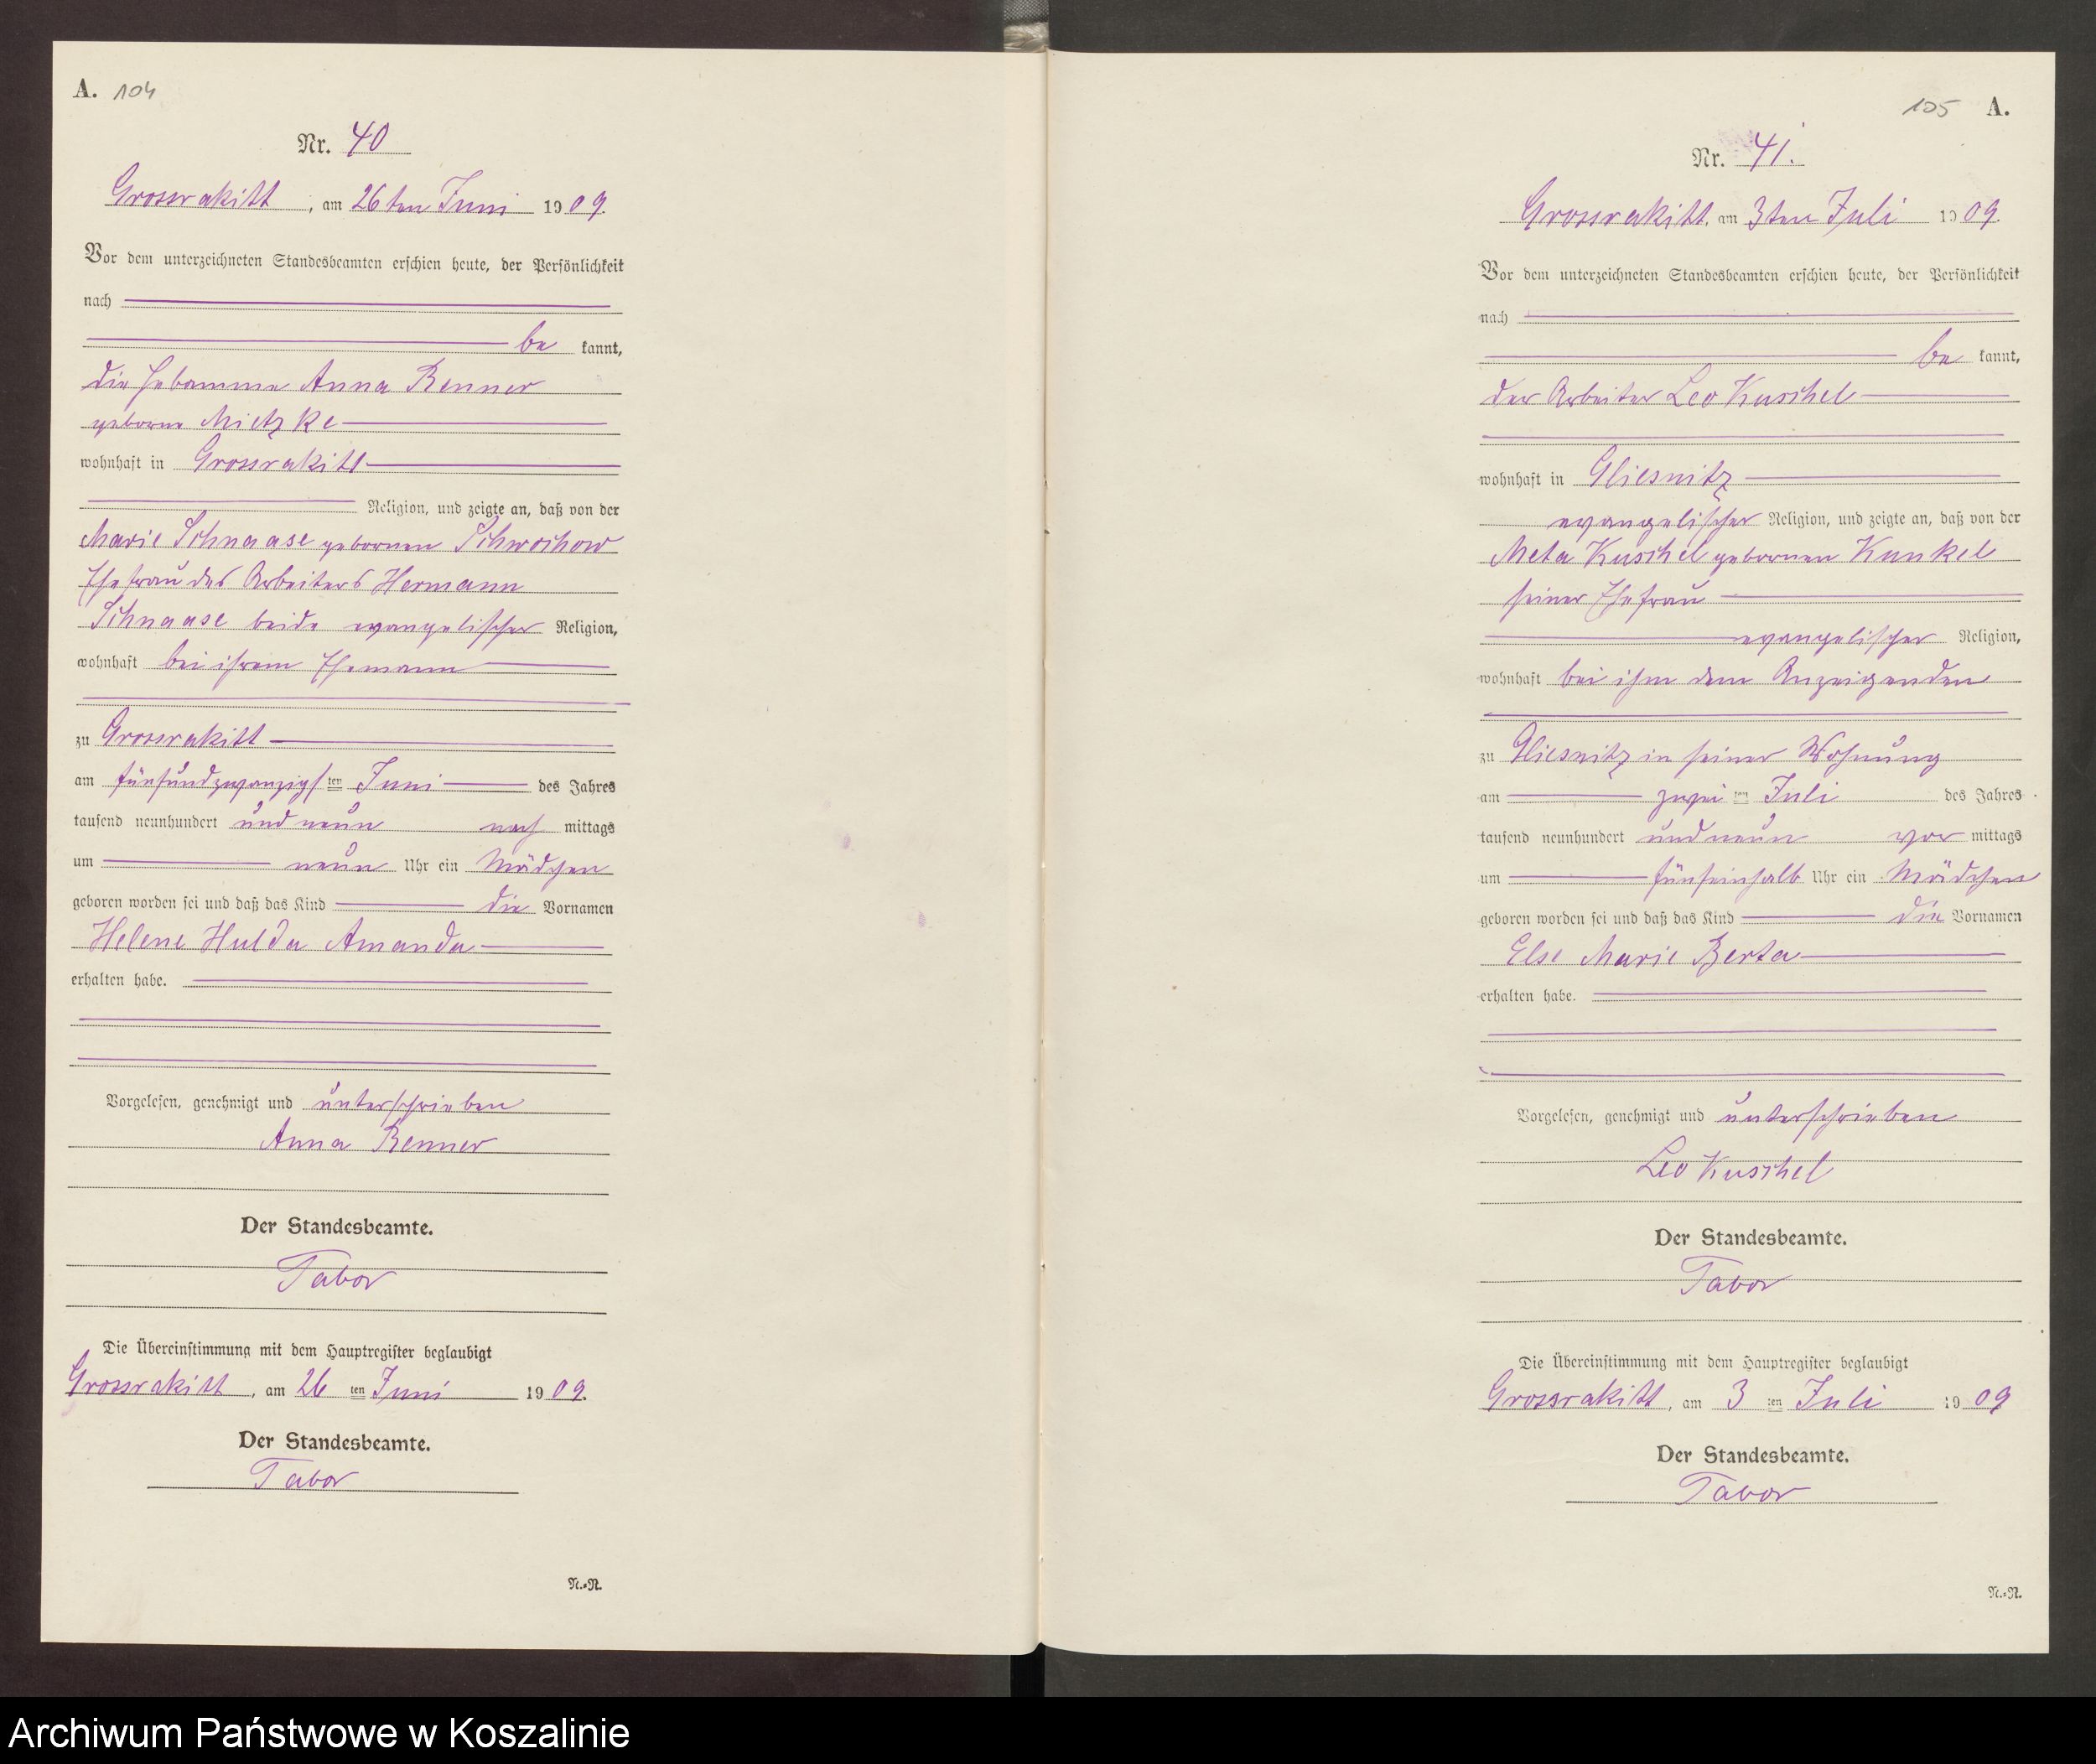 A. 104
Nr. 40
Grossrakitt, am 26ten Juni 1909.
Vor dem unterzeichneten Standesbeamten erschien heute, der Persönlichkeit
nach
be kannt,
die Hebamme Anna Renner
geborne Mietzke
wohnhaft in Grossrakitt
Religion, und zeigte an, daß von der
Marie Schnaase gebornen Schwochow
Ehefrau des Arbeiters Hermann
Schnaase beide evangelischer Religion,
wohnhaft bei ihrem Ehemann
zu Grossrakitt
am fünfundzwanzigsten Juni des Jahres
tausend neunhundert und neun nach mittags
um neun Uhr ein Mädchen
geboren worden sei und daß das Kind die Vornamen
Helene Hulda Amanda
erhalten habe.
Vorgelesen, genehmigt und unterschrieben
Anna Renner
Der Standesbeamte.
Tabor
Die Übereinstimmung mit dem Hauptregister beglaubigt
Grossrakitt, am 26 ten Juni 1909.
Der Standesbeamte.
Tabor
N.=N.
105 A.
Nr. 41.
Grossrakitt, am 3ten Juli 1909.
Vor dem unterzeichneten Standesbeamten erschien heute, der Persönlichkeit
nach
be kannt,
der Arbeiter Leo Kuschel
wohnhaft in Gliesnitz
evangelischer Religion, und zeigte an, daß von der
Meta Kuschel gebornen Kunkel
seiner Ehefrau
evangelischer Religion,
wohnhaft bei ihm dem Anzeigenden
zu Gliesnitz in seiner Wohnung
am zwei ten Juli des Jahres
tausend neunhundert und neun vor mittags
um fünfeinhalb Uhr ein Mädchen
geboren worden sei und daß das Kind die Vornamen
Else Marie Berta
erhalten habe.
Vorgelesen, genehmigt und unterschrieben
Leo Kuschel
Der Standesbeamte.
Tabor
Die Übereinstimmung mit dem Hauptregister beglaubigt
Grossrakitt, am 3 ten Juli 1909
Der Standesbeamte.
Tabor
N.=N.
Archiwum Państwowe w Koszalinie